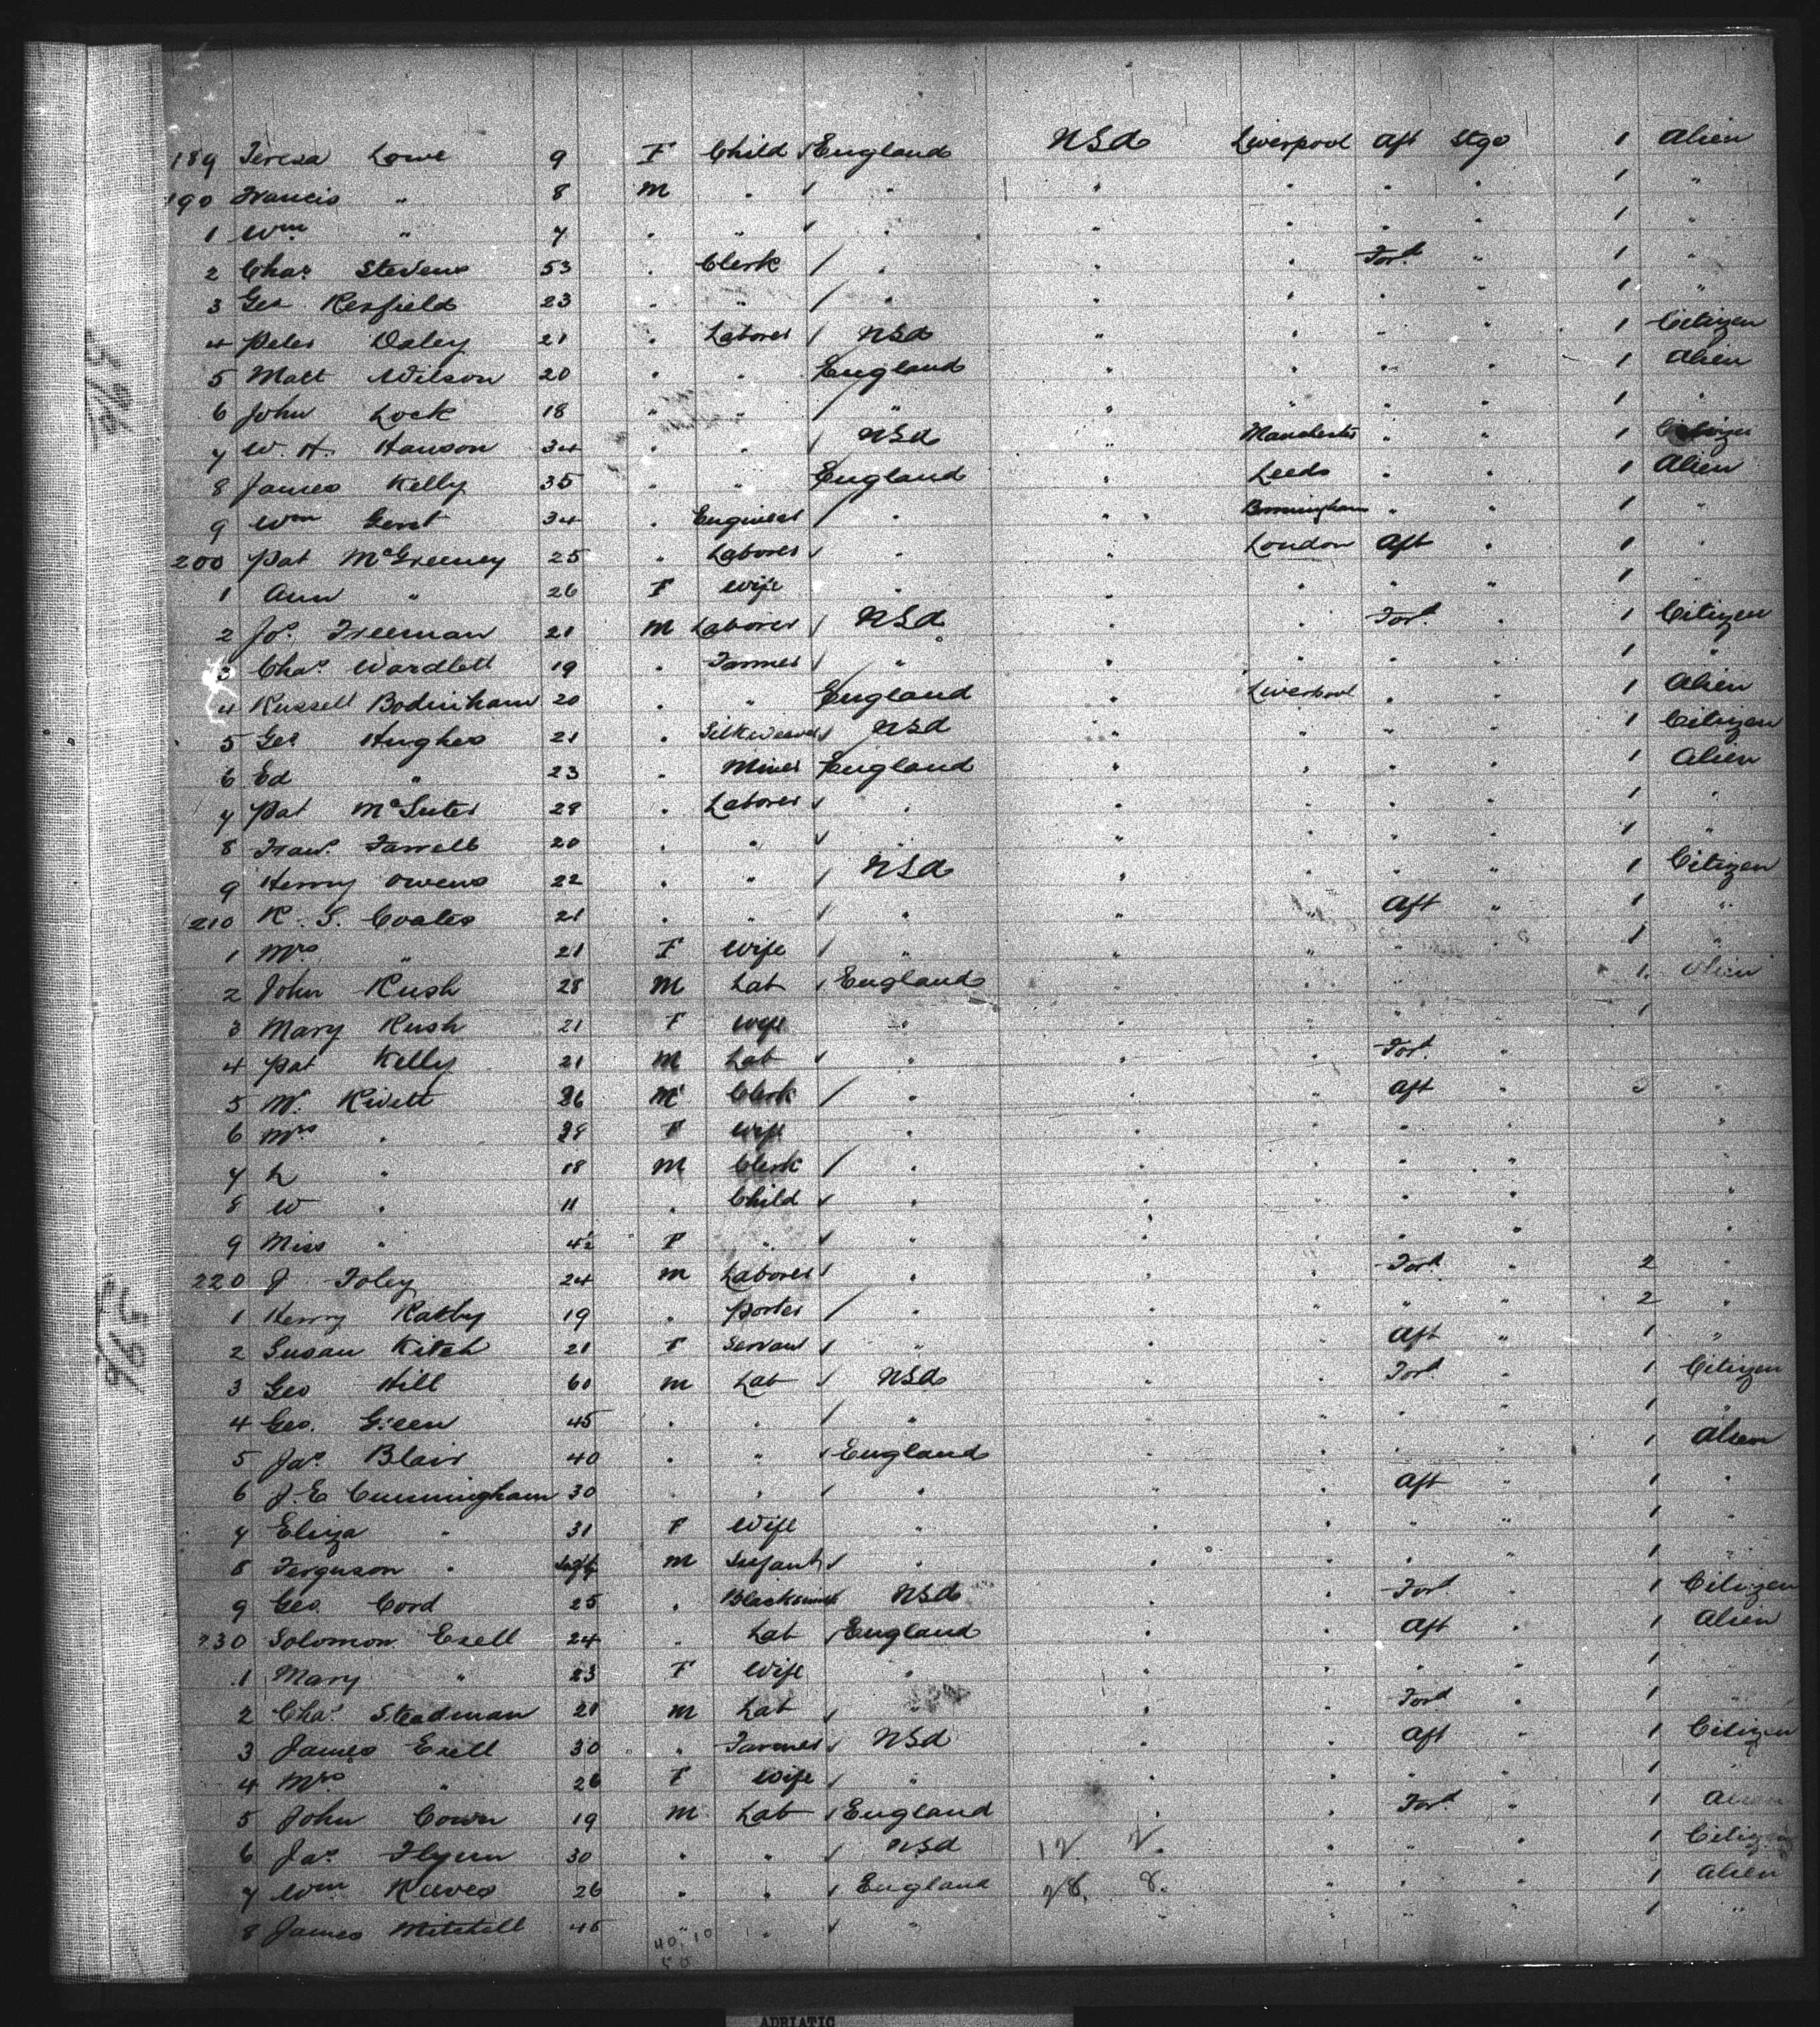 189 Teresa Lowe 9 F Child √ England USA Liverpool Aft Stge 1 Alien
190 Francis " 8 M " √ " " " " " 1 "
1 Wm " 7 " " √ " " " " " 1 "
2 Chas Stevens 53 " Clerk / " " " Ford " 1 "
3 Geo Renfield 23 " " / " " " " " 1 "
4 Peter Daley 21 " Laborer / USA " " " " 1 Citizen
5 Matt Wilson 20 " " England " " " " 1 Alien
6 John Lock 18 " " / " " " " " 1 "
7 W. H. Hanson 34 " " / USA " Manchester " " 1 Citizen
8 James Kelly 35 " " England " Leeds " " 1 Alien
9 Wm Gent 34 " Engineer / " " Birmingham " " 1 "
200 Pat McGreeney 25 " Laborer √ " " London Aft " 1 "
1 Ann " 26 F Wife " " " " " 1 "
2 Jos Freeman 21 M Laborer / USA " " Ford " 1 Citizen
3 Chas Wardlett 19 " Farmer √ " " " " " 1 "
4 Russell Bodinham 20 " " England " Liverpool " " 1 Alien
5 Geo Hughes 21 " Silk Weaver √ USA " " " " 1 Citizen
6 Ed " 23 " Miner England " " " " 1 Alien
7 Pat 29 " Laborer √ " " " " " 1 "
8 Farrell 20 " " √ " " " " " 1 "
9 Henry Owens 22 " " / USA " " " " 1 Citizen
210 R. S. Coates 21 " " √ " " " Aft " 1 "
1 Mrs " 21 F Wife / " " " " " 1 "
2 John Rush 28 M Lab √ England " " " " 1 Alien
3 Mary Rush 21 F Wife " " " " 1
4 Pat Kelly 21 M Lab √ " " " Ford "
5 Mr. Rivett 26 M Clerk / " " " Aft " "
6 Mrs " 28 F Wife " " " " " "
7 L " 18 M Clerk / " " " " "
8 W " 11 " Child √ " " " " " "
9 Miss " 4½ F " √ " " " " " "
220 J Foley 24 M Laborer √ " " " Ford " 2 "
1 Henry 19 " Porter / " " " " " 2 "
2 Susan Kitch 21 F Servant √ " " " Aft " 1 "
3 Geo Hill 60 M Lab √ USA " " Ford " 1 Citizen
4 Geo. Green 45 " " / " " " " " 1 "
5 Jas Blair 40 " " √ England " " " " 1 Alien
6 J. E Cunningham 30 " " √ " " " Aft " 1 "
7 Eliza " 31 F Wife " " " " " 1 "
8 Ferguson " M Infant √ " " " " " 1 "
9 Geo Cord 25 " Blacksmith USA " " Ford " 1 Citizen
230 Solomon Exell 24 " Lab √ England " " Aft " 1 Alien
1 Mary " 23 F Wife " " " " " 1 "
2 Chas Steadman 21 M Lab √ " Ford " 1 "
3 James Exell 30 " Farmer √ USA " " Aft " 1 Citizen
4 Mrs " 26 F Wife √ " " " " " 1 "
5 John Cown 19 M Lab √ England " " Ford " 1 Alien
6 Jas Flynn 30 " " √ USA " " " 1 Citizen
7 Wm Reeves 26 " " √ England " " " 1 Alien
8 James Mitchell 45 " " √ " " " " 1 "
40,10
50
ADRIATIC